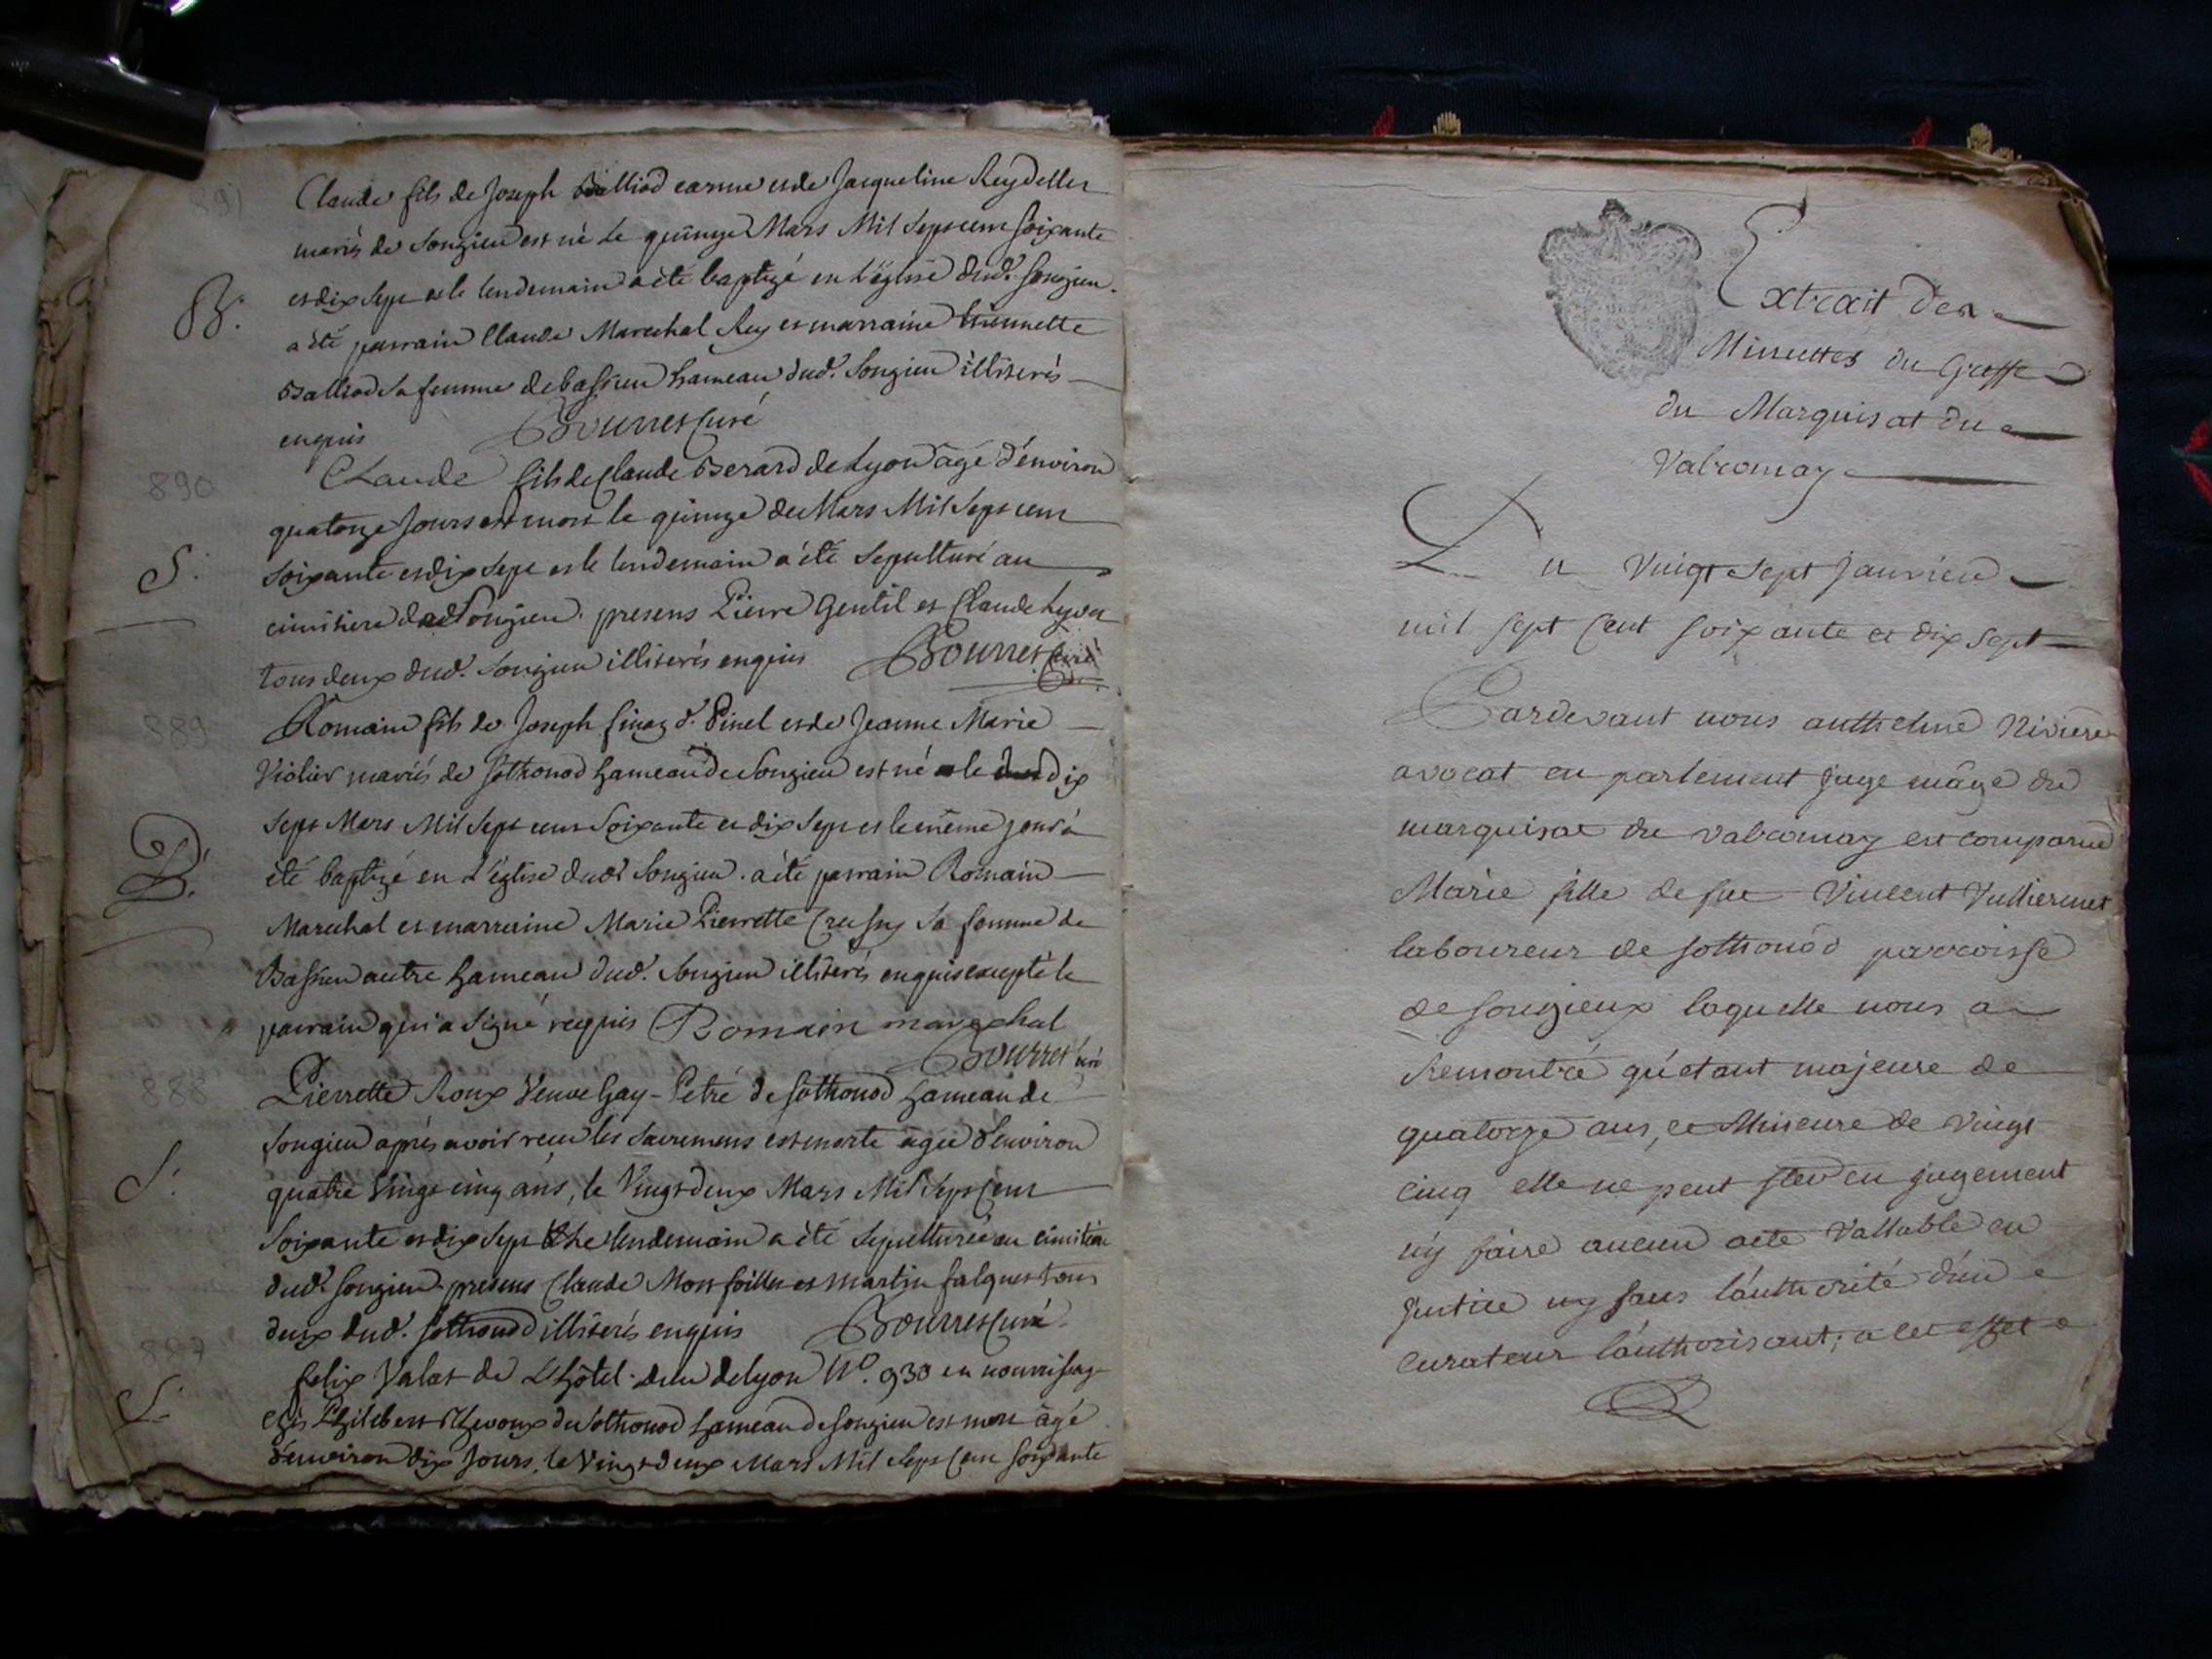 891
Claude fils de Joseph Balliod carme et de Jacqueline Reydellet
mariés de Songieu est né le quinze Mars Mil Sept cent soixante
et dix sept et le lendemain a été baptizé en L'église dud. Songieu.
B.
a été parrain Claude Marechal Rey et marraine
Balliod sa femme de bassieu hameau dud. Songieu illiterés
enquis Bourret Curé
890
Claude fils de Claude Berard de Lyon agé d'environ
quatorze Jours est mort le quinze de Mars Mil Sept cent
S.
soixante et dix sept et le lendemain a été Sepulturé au
cimitiere dud Songieu. presens Pierre Gentil et Claude Lyvet
tous deux dud. Songieu illiterés enquis Bourret Curé
889
Romain fils de Joseph finaz d. Pinel et de Jeanne Marie
Violier mariés de Sothonod hameau de Songieu est né le dix
Sept Mars Mil Sept cent Soixante et dix Sept et le même jour a
B.
été baptizé en L'église dud Songieu. a été parrain Romain
Marechal et marraine Marie Pierrette Crussy Sa femme de
Bassieu autre hameau dud. Songieu illiterés enquis excepté le
parrain qui a Signé requis Romain marechal
Bourret curé
888
Pierrette Roux Veuve hay-Petré de Sothonod hameau de
Songieu après avoir reçu les Sacremens est morte agée d'environ
S.
quatre Vingt cinq ans, le Vingt deux Mars Mil Sept Cent
Soixante et dix Sept le lendemain a été Sepulturée au cimitiere
dud. Songieu presens Claude Montfoillet et Martin falquet tous
deux dud. Sothonod illiterés enquis Bourret Curé
887
felix Valat de L'hôtel-Dieu de Lyon N°. 930 en nourrissage
S.
chés Philibert Thevoux de Sothonod hameau de Songieu est mort âgé
d'environ dix Jours, le Vingt deux Mars Mil Sept Cent soixante
Extrait des
Minuttes du Greffe
du Marquisat du
Valromay
Du Vingt Sept Janvier
mil sept Cent soixante et dix sept
Pardevant nous anthelme Riviere
avocat en parlement juge mâge du
marquisat du valromay est comparue
Marie fille de feu Vincent Vulliermet
laboureur de sothonod parroisse
de songieux laquelle nous a
Remontré qu'etant majeure de
quatorze ans, et Mineure de Vingt
cinq elle ne peut ster en jugement
n'y faire aucun acte Vallable en
justice ny sans l'authorité d'un
Curateur l'authorisant; a cet effet